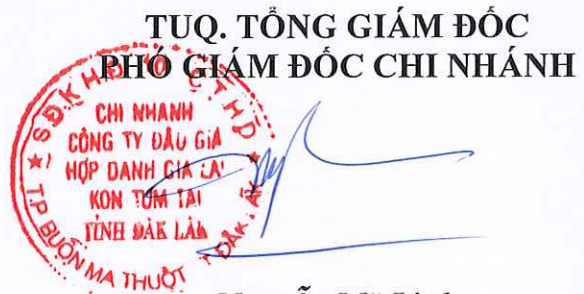 TUQ. TỔNG GIÁM ĐỐC
PHÓ GIÁM ĐỐC CHI NHÁNH
CHI NHANH
CÔNG TY ĐẤU GIÁ
HỢP DANH GIA LAI
KON TUM TẠI
TỈNH ĐĂK LĂK
TP BUÔN MA THUỘT